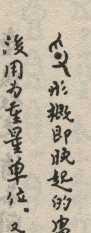 形概即晚起的
後用为重量单位。又